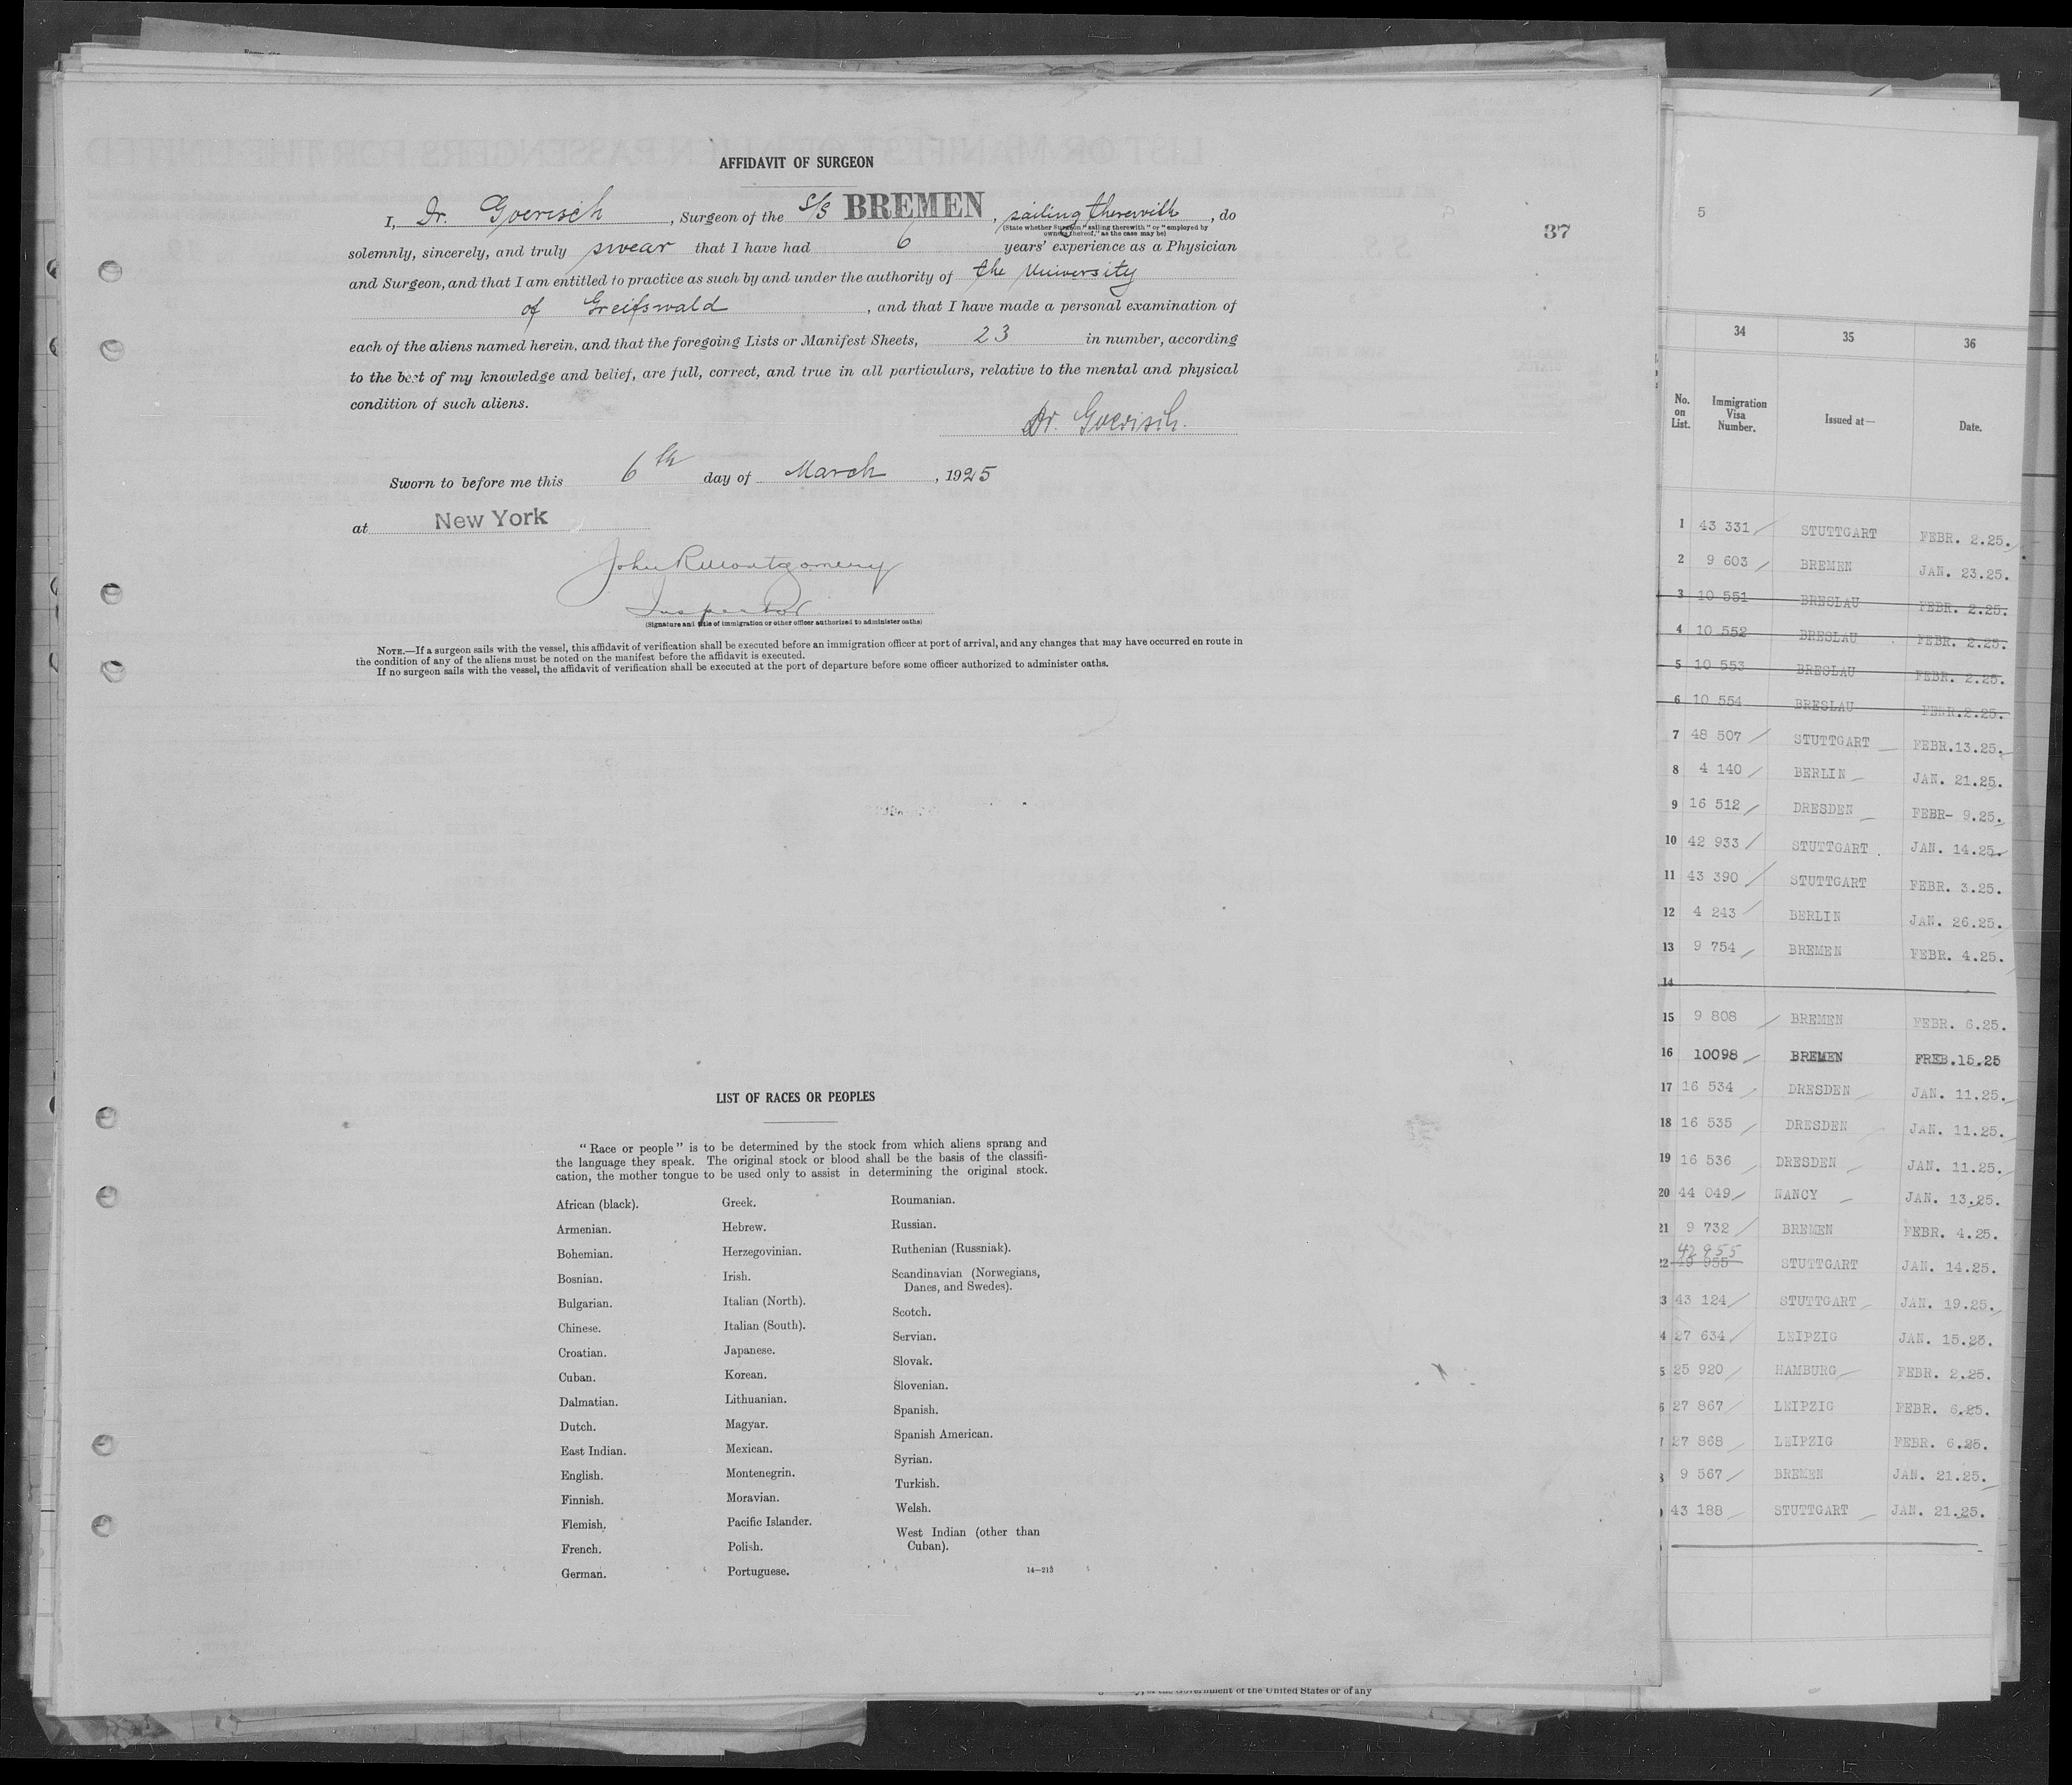 AFFIDAVIT OF SURGEON
I, Dr. Goerisch, Surgeon of the S/S BREMEN, sailing therewith, do
(State whether Surgeon "sailing therewith" or "employed by
owners thereof," as the case may be)
solemnly, sincerely, and truly swear that I have had 6 years' experience as a Physician
and Surgeon, and that I am entitled to practice as such by and under the authority of the University
of Greifswald, and that I have made a personal examination of
each of the aliens named herein, and that the foregoing Lists or Manifest Sheets, 23 in number, according
to the best of my knowledge and belief, are full, correct, and true in all particulars, relative to the mental and physical
condition of such aliens.
Dr. Goerisch.
Sworn to before me this 6th day of March, 1925
at New York
John R Montgomery
Inspector
(Signature and title of immigration or other officer authorized to administer oaths)
NOTE.—If a surgeon sails with the vessel, this affidavit of verification shall be executed before an immigration officer at port of arrival, and any changes that may have occurred en route in
the condition of any of the aliens must be noted on the manifest before the affidavit is executed.
If no surgeon sails with the vessel, the affidavit of verification shall be executed at the port of departure before some officer authorized to administer oaths.
37
LIST OF RACES OR PEOPLES
"Race or people" is to be determined by the stock from which aliens sprang and
the language they speak. The original stock or blood shall be the basis of the classifi-
cation, the mother tongue to be used only to assist in determining the original stock.
African (black).
Armenian.
Bohemian.
Bosnian.
Bulgarian.
Chinese.
Croatian.
Cuban.
Dalmatian.
Dutch.
East Indian.
English.
Finnish.
Flemish.
French.
German.
Greek.
Hebrew.
Herzegovinian.
Irish.
Italian (North).
Italian (South).
Japanese.
Korean.
Lithuanian.
Magyar.
Mexican.
Montenegrin.
Moravian.
Pacific Islander.
Polish.
Portuguese.
Roumanian.
Russian.
Ruthenian (Russniak).
Scandinavian (Norwegians,
Danes, and Swedes).
Scotch.
Servian.
Slovak.
Slovenian.
Spanish.
Spanish American.
Syrian.
Turkish.
Welsh.
West Indian (other than
Cuban).
14—213
Government of the United States or of any
5
34 35 36
No. on List. Immigration Visa Number. Issued at— Date.
1 43 331 STUTTGART FEBR. 2.25.
2 9 603 BREMEN JAN. 23.25.
3 10 551 BRESLAU FEBR. 2.25.
4 10 552 BRESLAU FEBR. 2.25.
5 10 553 BRESLAU FEBR. 2.25.
6 10 554 BRESLAU FEBR.2.25.
7 48 507 STUTTGART FEBR.13.25.
8 4 140 BERLIN JAN. 21.25.
9 16 512 DRESDEN FEBR- 9.25.
10 42 933 STUTTGART. JAN. 14.25.
11 43 390 STUTTGART FEBR. 3.25.
12 4 243 BERLIN JAN. 26.25.
13 9 754 BREMEN FEBR. 4.25.
14
15 9 808 BREMEN FEBR. 6.25.
16 10098 BREMEN FREB.15.25
17 16 534 DRESDEN JAN. 11.25.
18 16 535 DRESDEN JAN. 11.25.
19 16 536 DRESDEN JAN. 11.25.
20 44 049 NANCY JAN. 13.25.
21 9 732 BREMEN FEBR. 4.25.
42 955
22 49 955 STUTTGART JAN. 14.25.
3 43 124 STUTTGART JAN. 19.25.
4 27 634 LEIPZIG JAN. 15.25.
5 25 920 HAMBURG FEBR. 2.25.
6 27 867 LEIPZIG FEBR. 6.25.
7 27 868 LEIPZIG FEBR. 6.25.
8 9 567 BREMEN JAN. 21.25.
43 188 STUTTGART JAN. 21.25.